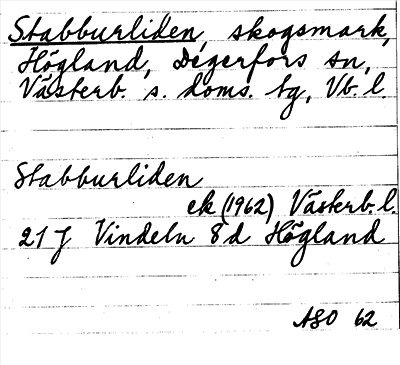 Stabburliden, skogsmark,
Högland, Degerfors sn,
Västerb. s. doms. tg, Vb. l.
Stabburliden
ek (1962) Västerb. l.
21 J Vindeln 8d Högland
ASO 62